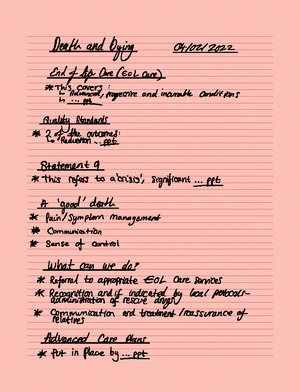 Death and Dying 04/02/2022
End of life Care (EOL Care)
* This covers:
↳ Advanced, progressive and incurable conditions
↳ ... ppt
Quality Standards
* 2 of the outcomes:
↳ Reduction ... ppt
Statement 9
* This refers to a 'crisis', significant ... ppt
A 'good' death
* Pain/Symptom management
* Communication
* Sense of control
What can we do?
* Referral to appropriate EOL Care Services
* Recognition and if indicated by local protocols-
administration of rescue drugs
* Communication and treatment/reassurance of
relatives
Advanced Care Plans
* Put in place by ... ppt